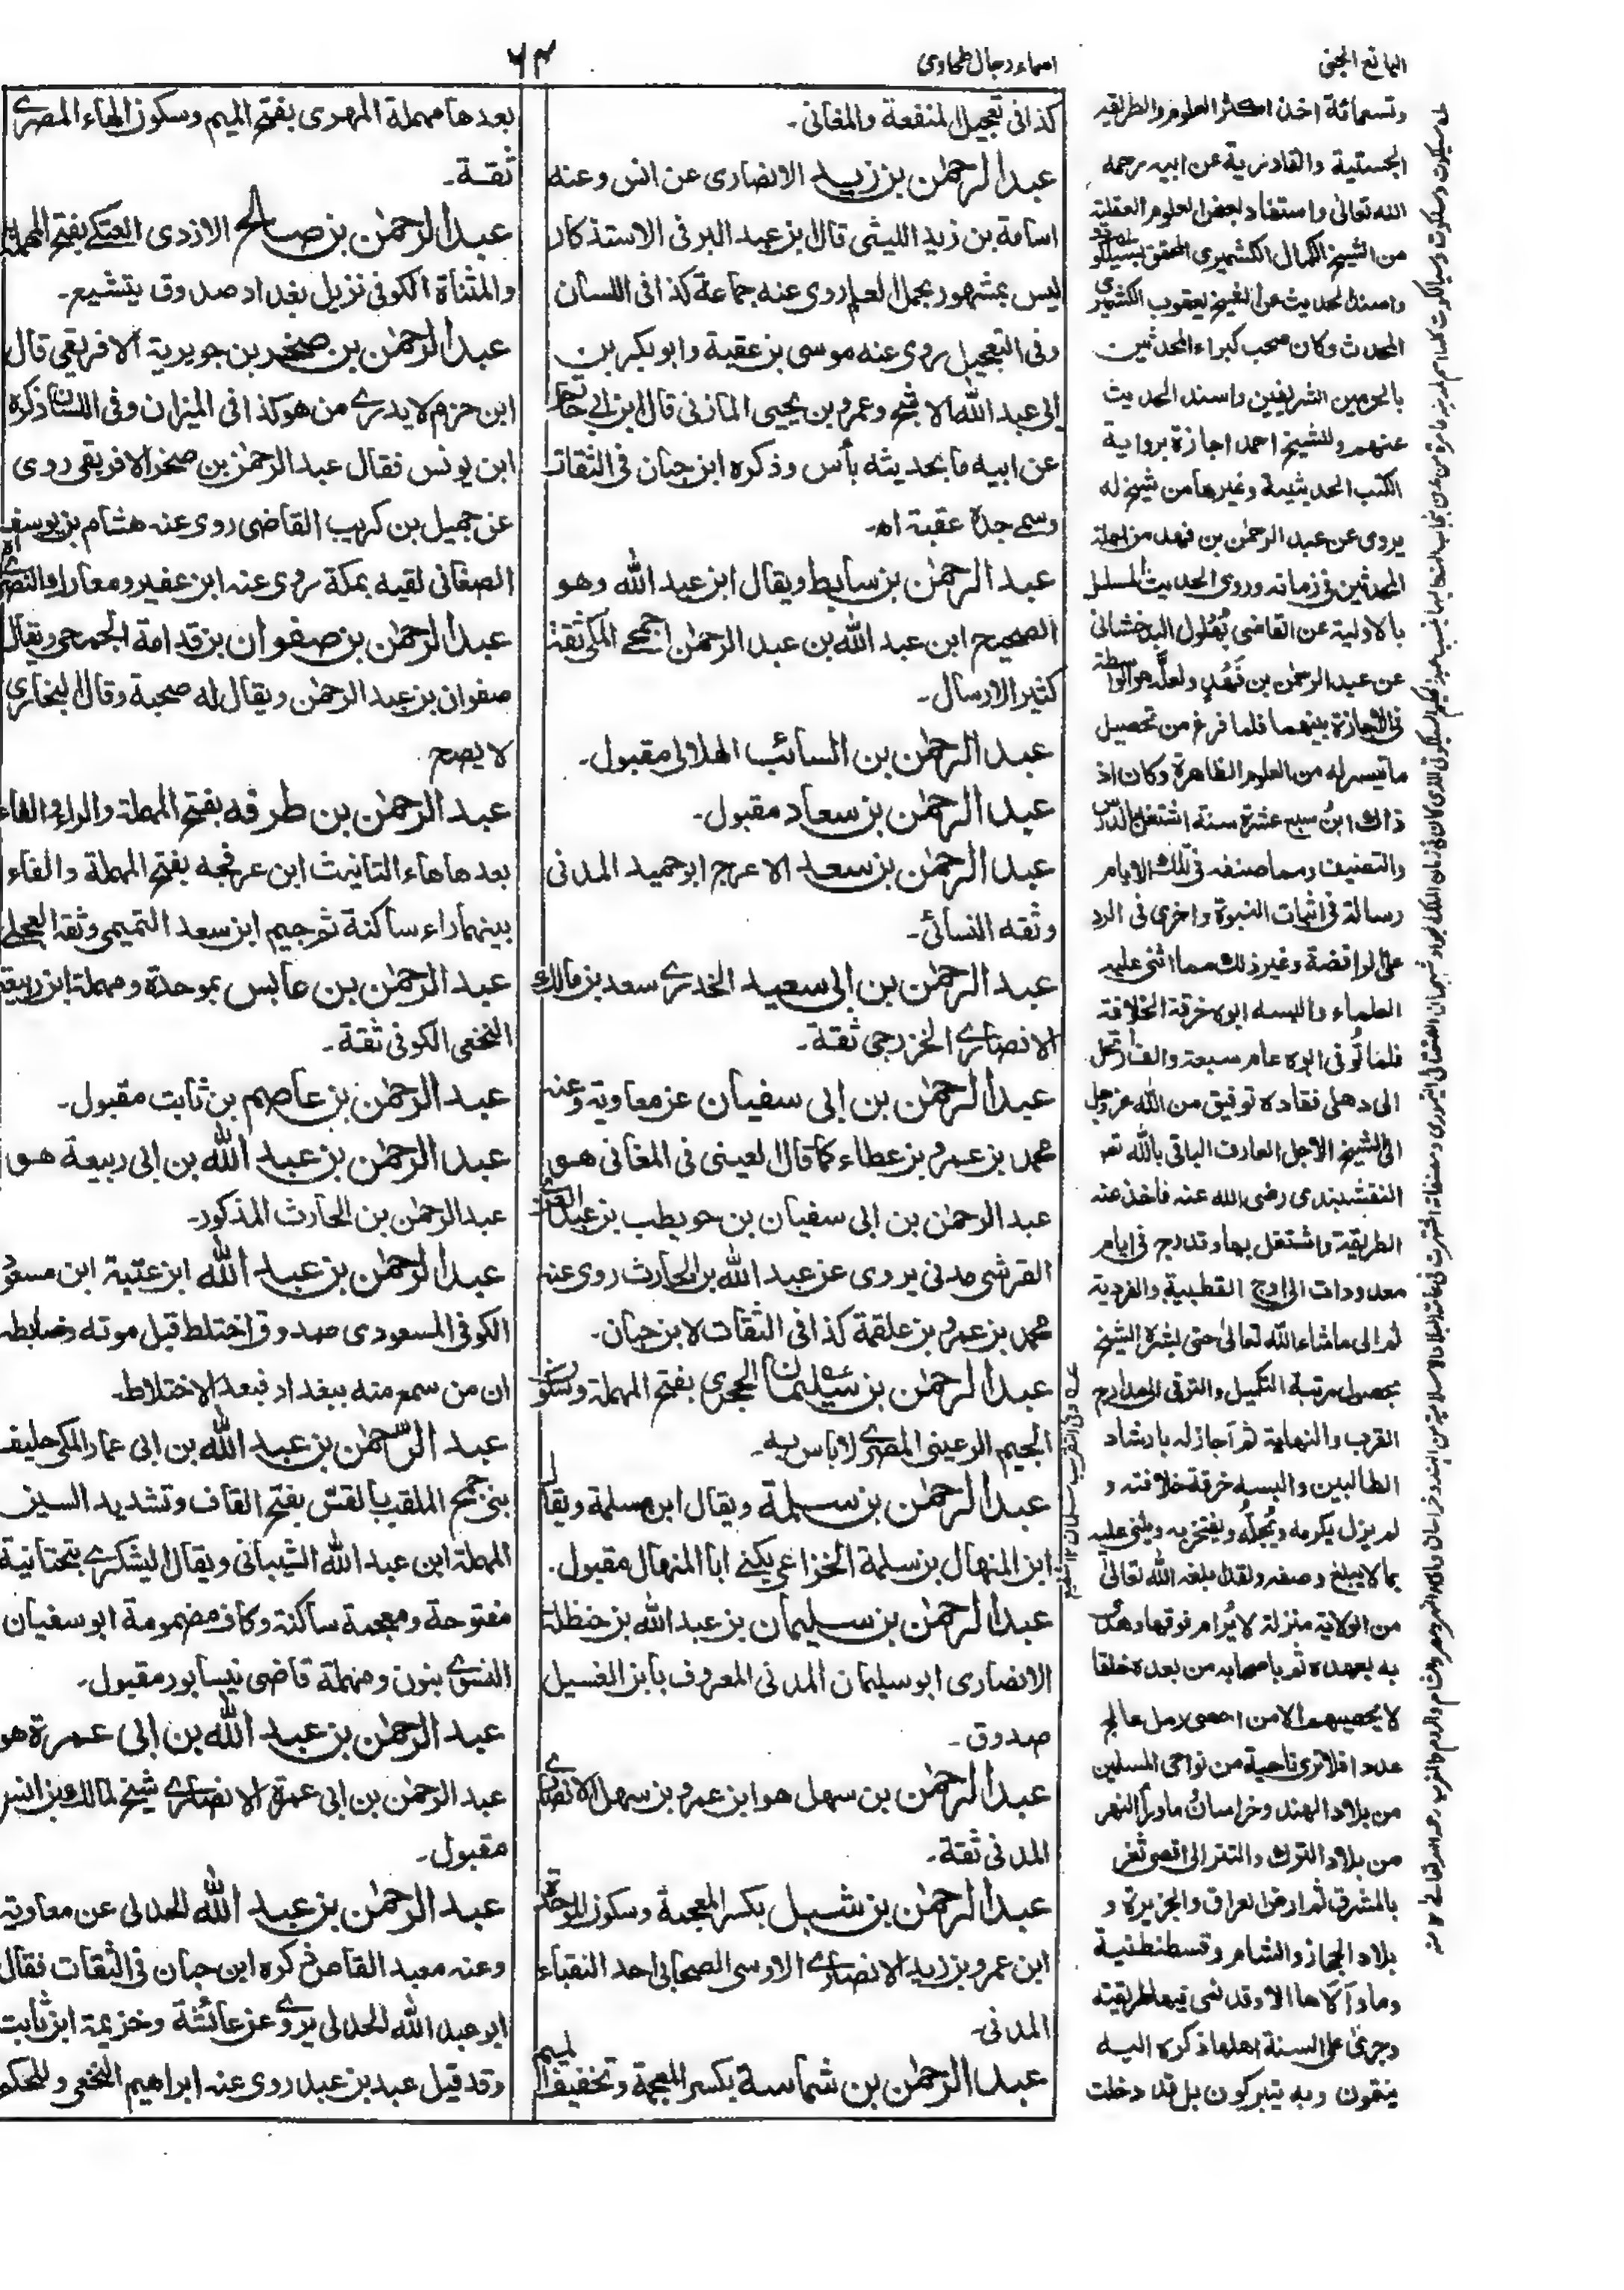 اليانع الجني
اسماء رجال طحاوي
٦٣
وتسعمائة اخذ اكثر العلوم والطريقة
الجستية والقادرية عن ابيه رحمه
الله تعالى واستفاد بعض العلوم العقلية
من الشيخ الكمال الكشميري المحقق بسيلكو
واسند الحديث عن الشيخ يعقوب الكشميري
المحدث وكان صحب كبراء المحدثين
بالحرمين الشريفين واسند الحديث
عنهم وللشيخ احمد اجازة برواية
الكتب الحديثية وغيرها من شيخ له
يروى عن عبد الرحمٰن بن فهد من اجلة
المحدثين في زمانه وروى الحديث المسلسل
بالاولية عن القاضي بُهلول البدخشاني
عن عبد الرحمٰن بن فَهْدٍ ولعلّه هو الواسطة
في الاجازة بينهما فلما فرغ من تحصيل
ما تيسر له من العلوم الظاهرة وكان اذ
ذاك ابنُ سبع عشرة سنة اشتغل بالدرس
والتصنيف ومما صنفه في تلك الايام
رسالة في اثبات النبوة واخرى في الرد
على الرافضة وغير ذلك مما اثنى عليه
العلماء والبسه ابوه خرقة الخلافة
فلما تُوفى ابوه عام سبعة والف ارتحل
الى دهلى فقاده توفيق من الله عز وجل
الى الشيخ الاجل العارف الباقي بالله
النقشبندى رضى الله عنه فاخذ عنه
الطريقة واشتغل بها وتدرج في ايام
معدودات الى اوج القطبية والفردية
ثم الى ماشاء الله تعالى حتى بشره الشيخ
بحصول مرتبة التكميل والترقى الى مدارج
القرب والنهاية ثم اجاز له بارشاد
الطالبين والبسه خرقة خلافته و
لم يزل يكرمه ويُجلّه ويفتخر به ويثنى عليه
بما لا يبلغ وصفه ولقد بلغه الله تعالى
من الولاية منزلة لا يُرام فوقها وهدى
به بعهده ثم باصحابه من بعده خلقا
لا يحصيهم الا من احصى رمل عالج
عددا فلا ترى ناحية من نواحى المسلمين
من بلاد الهند وخراسان وماوراء النهر
من بلاد الترك والتتر الى اقصى ثغر
بالمشرق ثم ارض العراق والجزيرة و
بلاد الحجاز والشام وقسطنطنية
وما والاها الا وقد نمى فيها طريقته
وجرى على السنة اهلها ذكره اليه
ينتمون وبه يتبركون بل قد دخلت
كذا في تعجيل المنفعة والمغانى۔
عبد الرحمٰن بن زيد الانصارى عن انس وعنه
اسامة بن زيد الليثى قال ابن عبد البر في الاستذكار
ليس بمشهور بحمل العلم روى عنه جماعة كذا في اللسان
وفى التعجيل روى عنه موسى بن عقبة وابو بكر بن
ابى عبد الله الاشج وعمرو بن يحيى المازنى قال ابن ابى حاتم
عن ابيه ما بحديثه بأس وذكره ابن حبان في الثقات
وسمى جده عقبة اه۔
عبد الرحمٰن بن سابط ويقال ابن عبد الله وهو
الصحيح ابن عبد الله بن عبد الرحمٰن الجمحى المكى ثقة
كثير الارسال۔
عبد الرحمٰن بن السائب الهلالى مقبول۔
عبد الرحمٰن بن سعاد مقبول۔
عبد الرحمٰن بن سعد الاعرج ابو حميد المدنى
وثقه النسائى۔
عبد الرحمٰن بن ابى سعيد الخدرى سعد بن مالك
الانصارى الخزرجى ثقة۔
عبد الرحمٰن بن ابى سفيان عن معاوية وعنه
محمد بن عمرو بن عطاء كما قال العينى فى المغانى هو
عبد الرحمٰن بن ابى سفيان بن حويطب بن عبد العزى
القرشى مدنى يروى عن عبد الله بن الحارث روى عنه
محمد بن عمرو بن علقمة كذا في الثقات لابن حبان۔
عبد الرحمٰن بن سليمان الحجرى بفتح المهملة وسكون
الجيم الرعينى المصرى لاباس به۔
عبد الرحمٰن بن سلمة ويقال ابن مسلمة ويقال
ابن المنهال بن سلمة الخزاعى يكنى ابا المنهال مقبول۔
عبد الرحمٰن بن سليمان بن عبد الله بن حنظلة
الانصارى ابو سليمان المدنى المعروف بابن الغسيل
صدوق۔
عبد الرحمٰن بن سهل هو ابن عمرو بن سهل الانصارى
المدنى ثقة۔
عبد الرحمٰن بن شبل بكسر المعجمة وسكون الموحدة
ابن عمرو بن زيد الانصارى الاوسى الصحابى احد النقباء
المدنى۔
عبد الرحمٰن بن شماسة بكسر المعجمة وتخفيف الميم
بعدها مهملة المهرى بفتح الميم وسكون الهاء المصرى
ثقة۔
عبد الرحمٰن بن صالح الازدى العتكى بفتح المهملة
والمثناة الكوفى نزيل بغداد صدوق يتشيع۔
عبد الرحمٰن بن صخر بن جويرية الافريقى قال
ابن حزم لا يدرى من هو كذا في الميزان وفى اللسان ذكره
ابن يونس فقال عبد الرحمٰن بن صخر الافريقى روى
عن جميل بن كريب القاضى روى عنه هشام بن يوسف
الصغانى لقيه بمكة روى عنه ابن عفير ومعارا والنصرى اه
عبد الرحمٰن بن صفوان بن قدامة الجمحى ويقال
صفوان بن عبد الرحمٰن ويقال له صحبة وقال البخارى
لا يصح
عبد الرحمٰن بن طرفه بفتح المهملة والراء والفاء
بعدها هاء التانيث ابن عرفجه بفتح المهملة والفاء
بينهما راء ساكنة ثم جيم ابن سعد التميمى وثقه العجلى
عبد الرحمٰن بن عابس بموحدة ومهملة ابن ربيعة
النخعى الكوفى ثقة۔
عبد الرحمٰن بن عاصم بن ثابت مقبول۔
عبد الرحمٰن بن عبد الله بن ابى ربيعة هو
عبد الرحمٰن بن الحارث المذكور۔
عبد الرحمٰن بن عبد الله ابن عتبة ابن مسعود
الكوفى المسعودى صدوق اختلط قبل موته وضابطه
ان من سمع منه ببغداد فبعد الاختلاط۔
عبد الرحمٰن بن عبد الله بن ابى عمار المكى حليف
بنى جمح الملقب بالقسّ بفتح القاف وتشديد السين
المهملة ابن عبد الله الشيبانى ويقال اليشكرى بتحتانية
مفتوحة ومعجمة ساكنة وكاف مضمومة ابو سفيان
النسوى بنون ومهملة قاضى نيسابور مقبول۔
عبد الرحمٰن بن عبد الله بن ابى عمرة هو
عبد الرحمٰن بن ابى عمرة الانصارى شيخ لمالك بن انس
مقبول۔
عبد الرحمٰن بن عبد الله الجدلى عن معاوية
وعنه معبد القاص ذكره ابن حبان في الثقات فقال
ابو عبد الله الجدلى يروى عن عائشة وخزيمة ابن ثابت
وقد قيل عبد بن عبد روى عنه ابراهيم النخعى والحكم